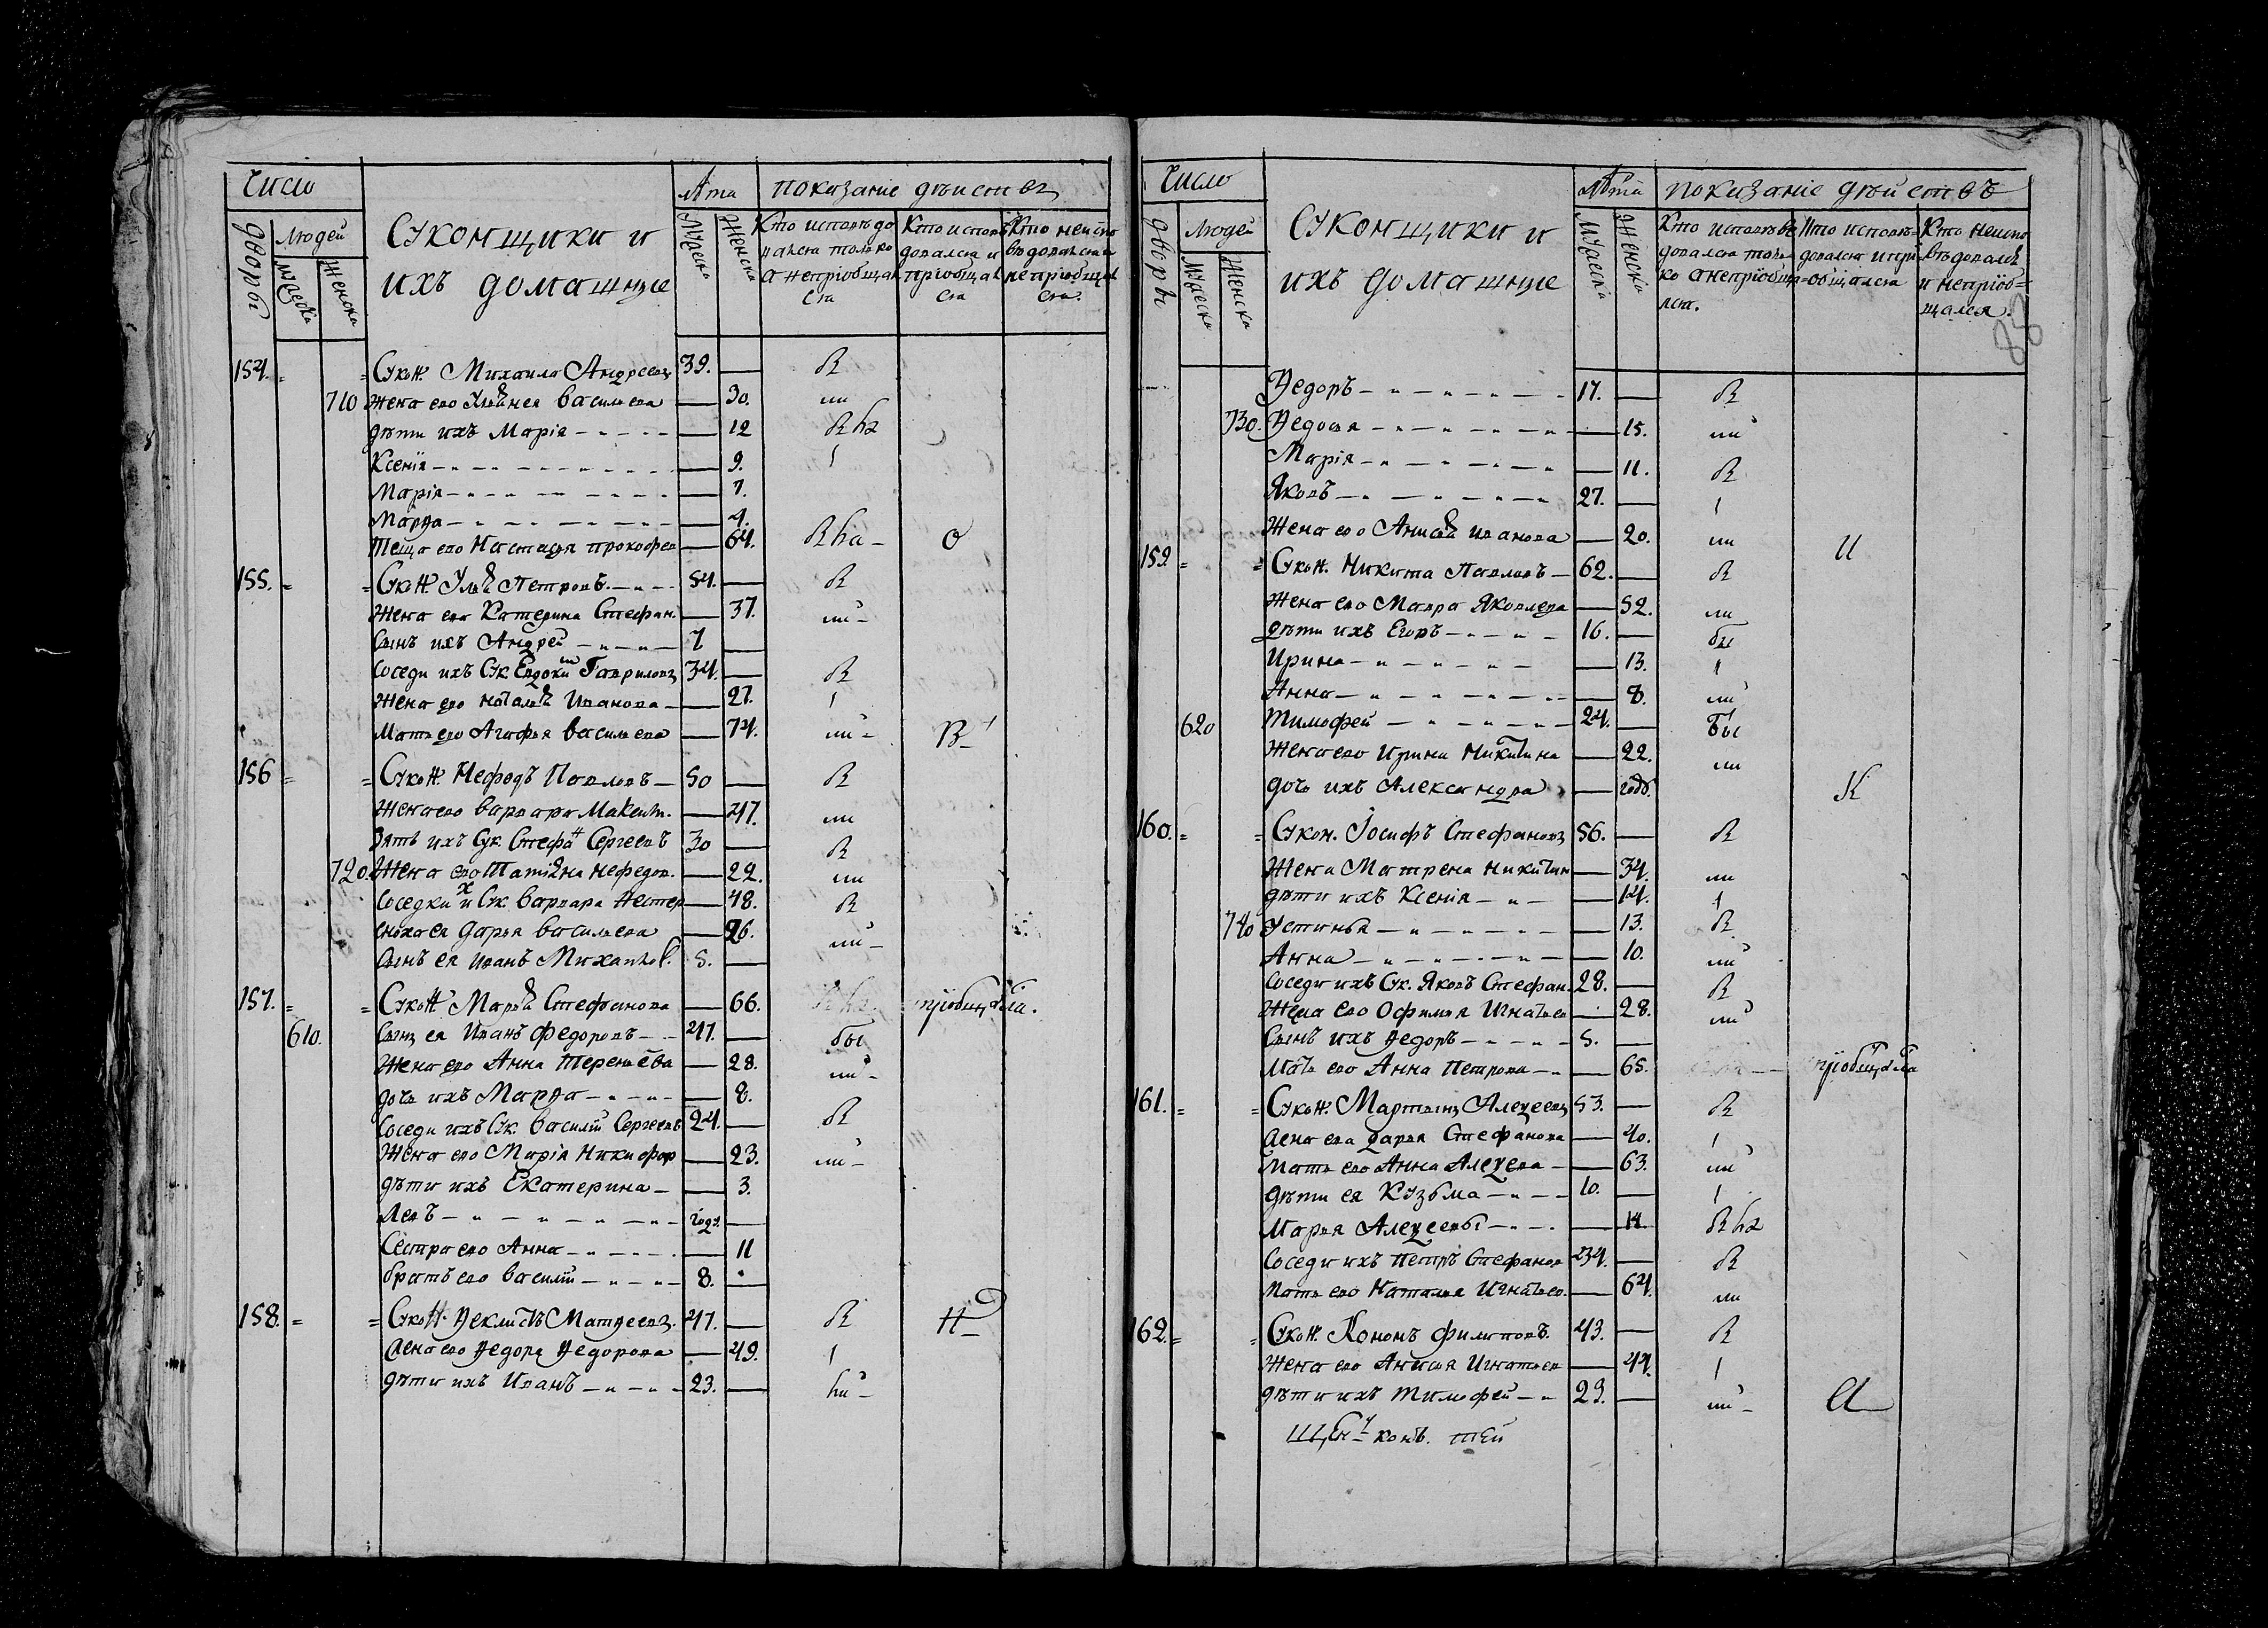 Число
Лѣта
показание дѣиствъ
дворы
Людей
Мужеска
Женска
Суконщики и
ихъ домашние
Мужеска
Женска
Кто исповѣдо
вался толко
а неприобщал
ся
Кто исповѣ
довался и
приобщал
ся
Кто неиспо
вѣдовался и
неприобщал
ся.
154. = = Сукон. Михаило Андреевъ 39. — R
710 жена его Васильева — 30. ни
дѣти ихъ Марія — 12 R ha
Ксенія — 9. 1
Марія — 7.
Марѳа — 4.
Теща его Настасья прокофев — 64. R ha - О
155. = = Сукон. Петровъ. 54. — R
Жена его Катерина Стефан. — 37. ни -
Сынъ ихъ Андрей 7 —
Соседи ихъ Сук. Евдоким Гавриловъ 34. — R
жена его Наталья Иванова — 27. 1
Мать его Агафья васильева — 74. ни - В
156 = = Сукон. Нефодъ Павловъ 50 — R
жена его варвара Максим. — 47. ни
Зять ихъ Сук. Стефан Сергеевъ 30 — R
720. Жена его Татіяна Нефедов. — 22. ни
Соседки их Сук. варвара Нестер — 48. R
сноха ея Дарья васильева — 26. ни -
Сынъ ея Иванъ Михаилов. 5. —
157. = = Сукон. Марья Стефанова — 66. приобщалса.
610. Сынъ ея Иванъ Федоровъ 47. — бы
Жена его Анна Терентьева — 28. ни -
дочь ихъ Марѳа — 8.
Соседи ихъ Сук. василий Сергеевъ 24. — R
Жена его Марія Никифор — 23. ни -
дѣти ихъ Екатерина — 3.
Левъ годъ. —
Сестра его Анна — 11
братъ его василий 8. —
158. = = Сукон. Ѳеклистъ Матѳеевъ. 47. — R Н
жена его Ѳедора Ѳедорова — 49. 1
дѣти ихъ Иванъ 23. — ни -
Число
Лѣта
показание дѣйствъ
дворы
Людей
Мужеска
Женска
Суконщики и
ихъ домашние
Мужеска
Женска
Кто исповѣ
довался толь
ко а неприобща
лся.
Кто исповѣ-
довался и при
общался
Кто неиспо
вѣдовался
и неприоб=
щался.
88
Ѳедоръ 17. — R
730. Ѳедосья — 15. ни
Марія — 11. R
Яковъ 27. — 1
Жена его Анисья Иванова — 20. ни И
159. = = Сукон. Никита Павловъ 62. — R
жена его Мавра Яковлева — 52. ни
дѣти ихъ Егоръ 16. — бы
Ирина — 13. 1
Анна — 8. ни
620 Тимофей 24. — бы
Жена его Ирина Никитина — 22. ни
дочь ихъ Александра — годъ. К
160. = = Сукон. Іосифъ Стефановъ 56. — R
Жена Матрена Никитин — 34. ни
дѣти ихъ Ксенія — 14. 1
740 Устинья — 13. R
Анна — 10. ни
Соседи ихъ Сук. Яковъ Стефан. 28. — R
Жена его Офимья Игнатьев — 28. ни
Сынъ ихъ Ѳедоръ 5. —
Мать его Анна Петрова — 65. приобщалса
161. = = Сукон. Мартынъ Алеѯеевъ 53. — R
жена его дарья Стефанова — 40. 1
Мать его Анна Алеѯева — 63. ни
дѣти ея Кузьма 10. — 1
Марья Алеѯеевы — 14. R ha
Соседи ихъ Петръ Стефанов 34. — R
Мать его Наталья Игнатьев. — 64. ни
162. = = Сукон. Кононъ Филиповъ. 43. — R
Жена его Анисья Игнатьев — 44. 1
дѣти ихъ Тимофей 23. — ни - А